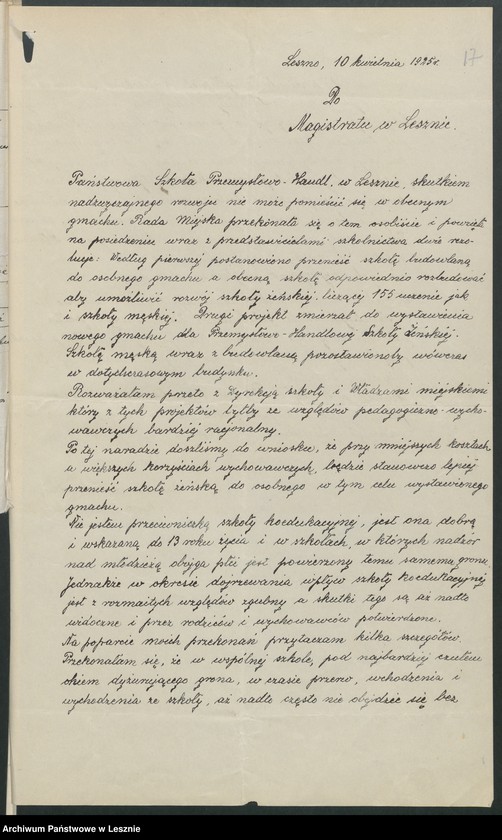 17
Leszno, 10 kwietnia 1925 r.
Do
Magistratu w Lesznie.
Państwowa Szkoła Przemysłowo-Handl. w Lesznie, skutkiem
nadzwyczajnego rozwoju nie może pomieścić się w obecnym
gmachu. Rada Miejska przekonała się o tem osobiście i powzięła
na posiedzeniu wraz z przedstawicielami szkolnictwa dwie rezo-
lucje: Według pierwszej postanowiono przenieść szkołę budowlaną
do osobnego gmachu a obecną szkołę odpowiednio rozbudować
aby umożliwić rozwój szkoły żeńskiej liczącej 155 uczenic jak
i szkoły męskiej. Drugi projekt zmierzał do wystawienia
nowego gmachu dla Przemysłowo-Handlowej Szkoły Żeńskiej.
Szkołę męską wraz z budowlaną pozostawionoby wówczas
w dotychczasowym budynku.
Rozważałam przeto z Dyrekcją szkoły i Władzami miejskiemi
który z tych projektów byłby ze względów pedagogiczno-wycho-
wawczych bardziej racjonalny.
Po tej naradzie doszliśmy do wniosku, że przy mniejszych kosztach
a większych korzyściach wychowawczych, będzie stanowczo lepiej
przenieść szkołę żeńską do osobnego w tym celu wystawionego
gmachu.
Nie jestem przeciwniczką szkoły koedukacyjnej, jest ona dobrą
i wskazaną do 13 roku życia i w szkołach, w których nadzór
nad młodzieżą obojga płci jest powierzony temu samemu gronu.
Jednakże w okresie dojrzewania wpływ szkoły koedukacyjnej
jest z rozmaitych względów zgubny a skutki tego są aż nadto
widoczne i przez rodziców i wychowawców potwierdzone.
Na poparcie moich przekonań przytaczam kilka szczegółów.
Przekonałam się, że w wspólnej szkole, pod najbardziej czułem
okiem dyżurującego grona, w czasie przerw, wchodzenia i
wychodzenia ze szkoły, aż nadto często nie obejdzie się bez
Archiwum Państwowe w Lesznie